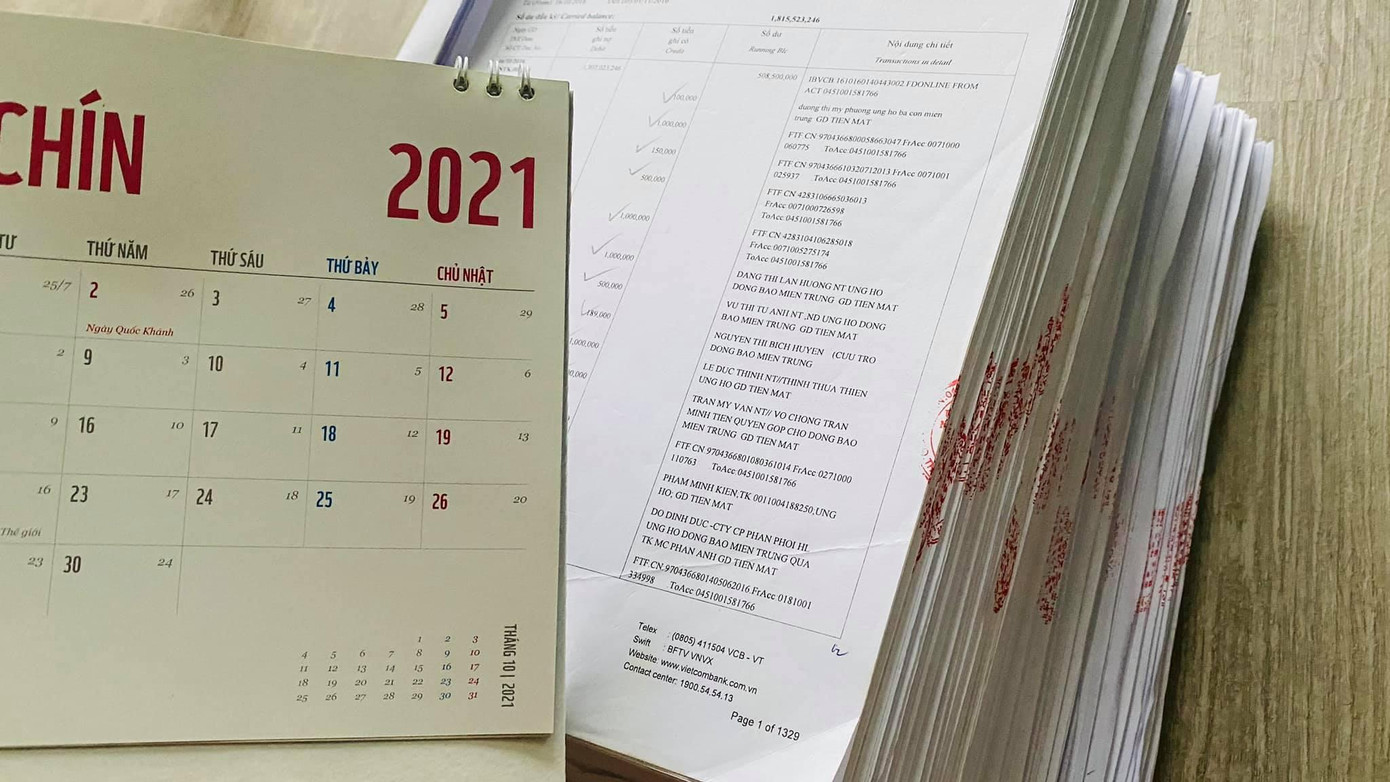 CHÍN
2021
TƯ THỨ NĂM THỨ SÁU THỨ BẢY CHỦ NHẬT
25/7 2 26 3 27 4 28 5 29
Ngày Quốc Khánh
2 9 3 10 4 11 5 12 6
9 16 10 17 11 18 12 19 13
16 23 17 24 18 25 19 26 20
Thế giới
23 30 24
THÁNG 10 | 2021
1 2 3
4 5 6 7 8 9 10
11 12 13 14 15 16 17
18 19 20 21 22 23 24
25 26 27 28 29 30 31
Số dư đầu kỳ/ Carried balance: 1,815,523,246
Số tiền Số tiền Số dư Nội dung chi tiết
ghi nợ ghi có
Debit Credit Running Blc Transactions in detail
508,500,000 IBVCB 1610160140443002 FDONLINE FROM
ACT 0451001581766
100,000 duong thi my phuong ung ho ba con mien
trung GD TIEN MAT
1,000,000 FTF CN 9704366800058663047 FrAcc 0071000
060775 ToAcc:0451001581766
150,000 FTF CN 9704366610320712013 FrAcc 0071001
025937 ToAcc:0451001581766
500,000 FTF CN 4283106665036013
FrAcc:0071000726598
ToAcc:0451001581766
1,000,000 FTF CN 4283104106285018
FrAcc:0071005275174
ToAcc:0451001581766
1,000,000 DANG THI LAN HUONG NT UNG HO
DONG BAO MIEN TRUNG GD TIEN MAT
500,000 VU THI TU ANH NT ,ND UNG HO DONG
BAO MIEN TRUNG GD TIEN MAT
NGUYEN THI BICH HUYEN (CUU TRO
DONG BAO MIEN TRUNG
LE DUC THINH NT//THINH THUA THIEN
UNG HO GD TIEN MAT
TRAN MY VAN NT// VO CHONG TRAN
MINH TIEN QUYEN GOP CHO DONG BAO
MIEN TRUNG GD TIEN MAT
FTF CN 9704366801080361014 FrAcc:0271000
110763 ToAcc:0451001581766
PHAM MINH KIEN,TK 0011004188250,UNG
HO; GD TIEN MAT
DO DINH DUC -CTY CP PHAN PHOI HL
UNG HO DONG BAO MIEN TRUNG QUA
TK MC PHAN ANH GD TIEN MAT
FTF CN 9704366801405062016 FrAcc 0181001
334998 ToAcc:0451001581766
Telex : (0805) 411504 VCB - VT
Swift : BFTV VNVX
Website: www.vietcombank.com.vn
Contact center: 1900.54.54.13
Page 1 of 1329